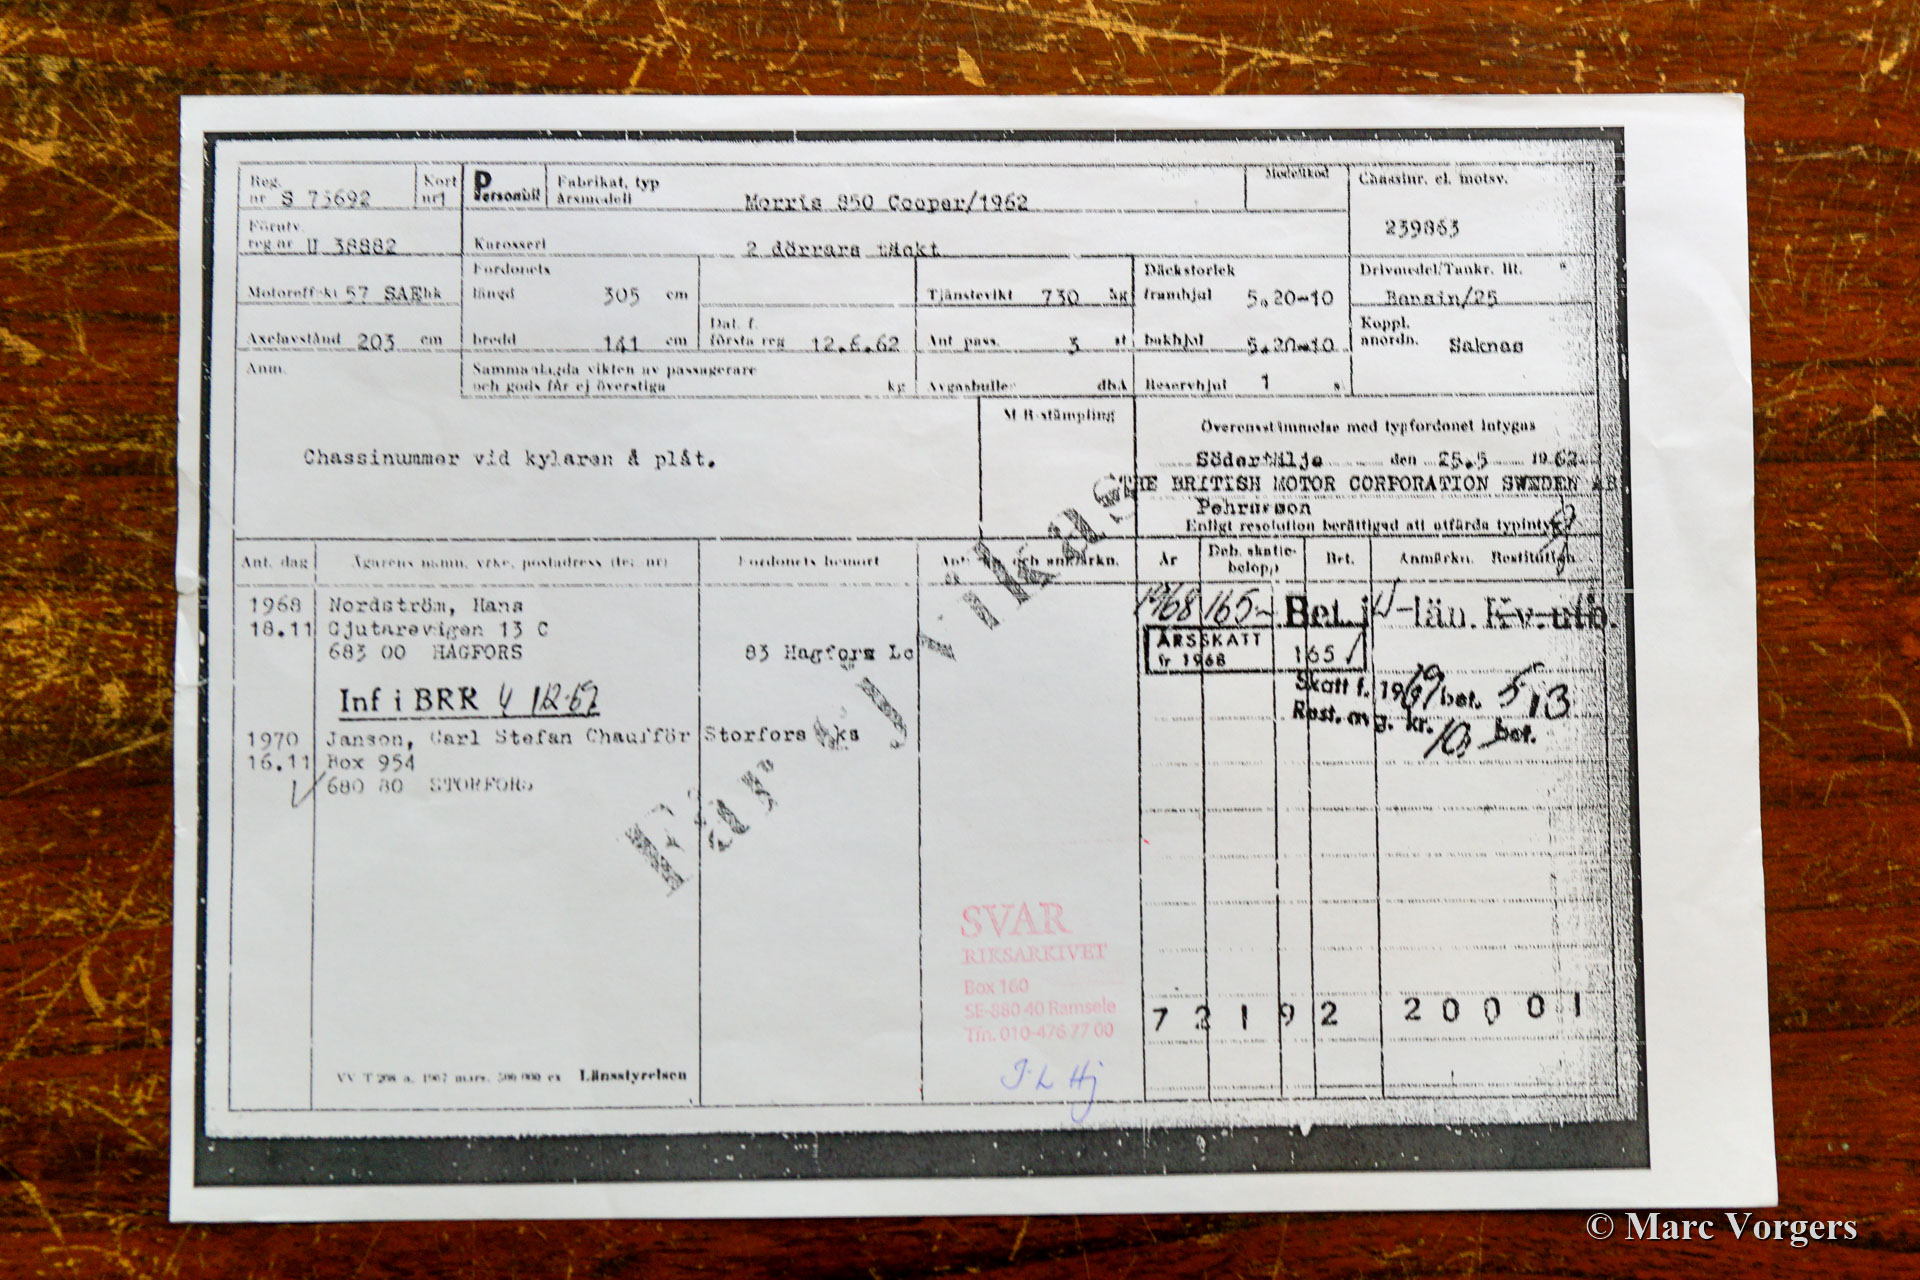 Reg. nr S 73692
Kort nr 1
P Personbil
Fabrikat, typ årsmodell Morris 850 Cooper/1962
Modellkod
Chassinr. el. motsv. 239863
Förutv. reg nr U 38882
Karosseri 2 dörrars täckt
Motoreffekt 57 SAE hk
Fordonets längd 305 cm
Tjänstevikt 730 kg
Däckstorlek framhjul 5,20-10
Drivmedel/Tankr. lit. Bensin/25
Axelavstånd 203 cm
bredd 141 cm
Dat. f. första reg 12.6.62
Ant pass. 3 st
bakhjul 5.20-10
Koppl. anordn. Saknas
Anm.
Sammanlagda vikten av passagerare
och gods får ej överstiga kg
Avgasbuller dbA
Reservhjul 1 s
M R-stämpling
Överensstämmelse med typfordonet intygas
Chassinummer vid kylaren å plåt.
Södertälje den 25.5 1962
THE BRITISH MOTOR CORPORATION SWEDEN AB
Pehrsson
Enligt resolution berättigad att utfärda typintyg
Ant. dag
Ägarens namn, yrke, postadress (tel nr)
Fordonets hemort
och anmärkn.
År
Deb. skatte-belopp
Bet.
Anmärkn.
Restitution
1968 Nordström, Hans
18.11 Gjutarevägen 13 C
683 00 HAGFORS
83 Hagfors Lc
1968 165-
Bet. i W-län. Kv. utb.
ÅRSSKATT
fr 1968
165
Inf i BRR 4/12-69
Skatt f. 1969 bet. 5/3
Rest. avg. kr. 10 bet.
1970 Janson, Carl Stefan Chaufför
Storfors ks
16.11 Box 954
680 80 STORFORS
SVAR
RIKSARKIVET
Box 160
SE-880 40 Ramsele
Tfn. 010-476 77 00
72192 20001
VV T 208 a. 1967 mars. 500 000 ex Länsstyrelsen
© Marc Vorgers